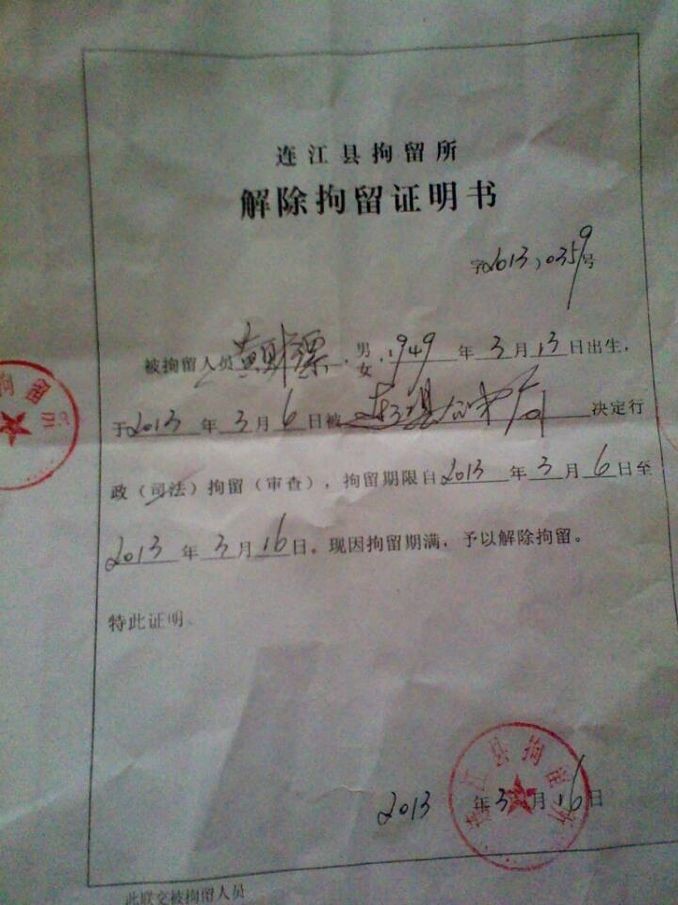 连江县拘留所
解除拘留证明书
字2013)0359号
被拘留人员黄财 ，男女，1949年3月13日出生，
于2013年3月6日被连江县公安局决定行
政（司法）拘留（审查），拘留期限自2013年3月6日至
2013年3月16日。现因拘留期满，予以解除拘留。
特此证明。
连江县拘留所
2013年3月16日
此联交被拘留人员
拘留